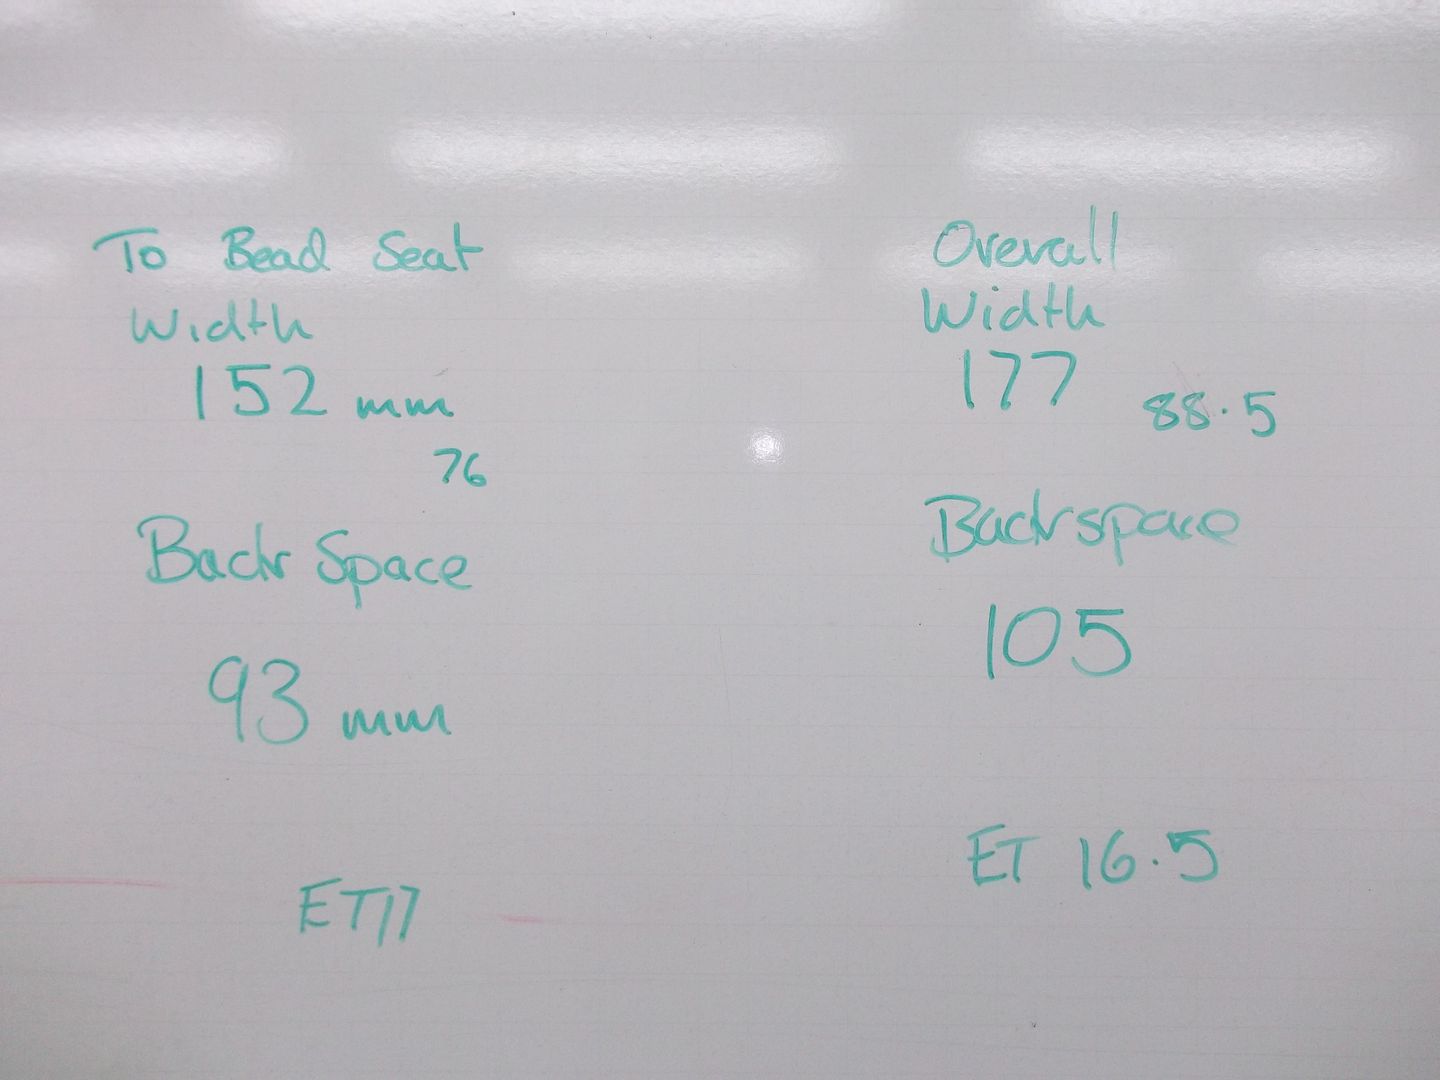 To Bead Seat
Width
152 mm
76
Back Space
93 mm
ET17
Overall
Width
177
88.5
Backspace
105
ET 16.5